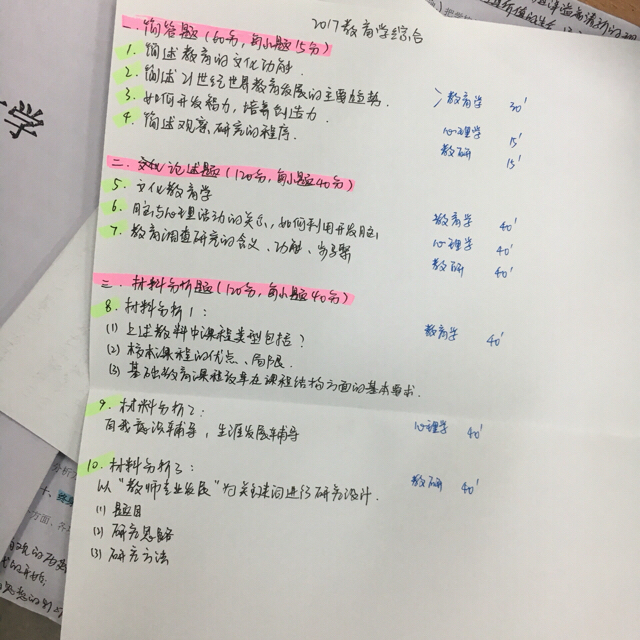 2017教育学综合
一、简答题(60分,每小题15分)
1. 简述教育的文化功能.
2. 简述21世纪世界教育发展的主要趋势. 教育学 30'
3. 如何开发智力,培养创造力. 心理学 15'
4. 简述观察研究的程序. 教研 15'
二、论述题(120分,每小题40分)
5. 文化教育学 教育学 40'
6. 脑与心理活动的关系,如何利用开发脑 心理学 40'
7. 教育调查研究的含义、功能、步骤 教研 40'
三、材料分析题(120分,每小题40分)
8. 材料分析1: 教育学 40'
(1) 上述教料中课程类型包括?
(2) 校本课程的优点、局限.
(3) 基础教育课程改革在课程结构方面的基本要求.
9. 材料分析2: 心理学 40'
自我意识辅导,生涯发展辅导
10. 材料分析3: 教研 40'
以“教师专业发展”为关键词进行研究设计.
(1) 题目
(2) 研究思路
(3) 研究方法
学